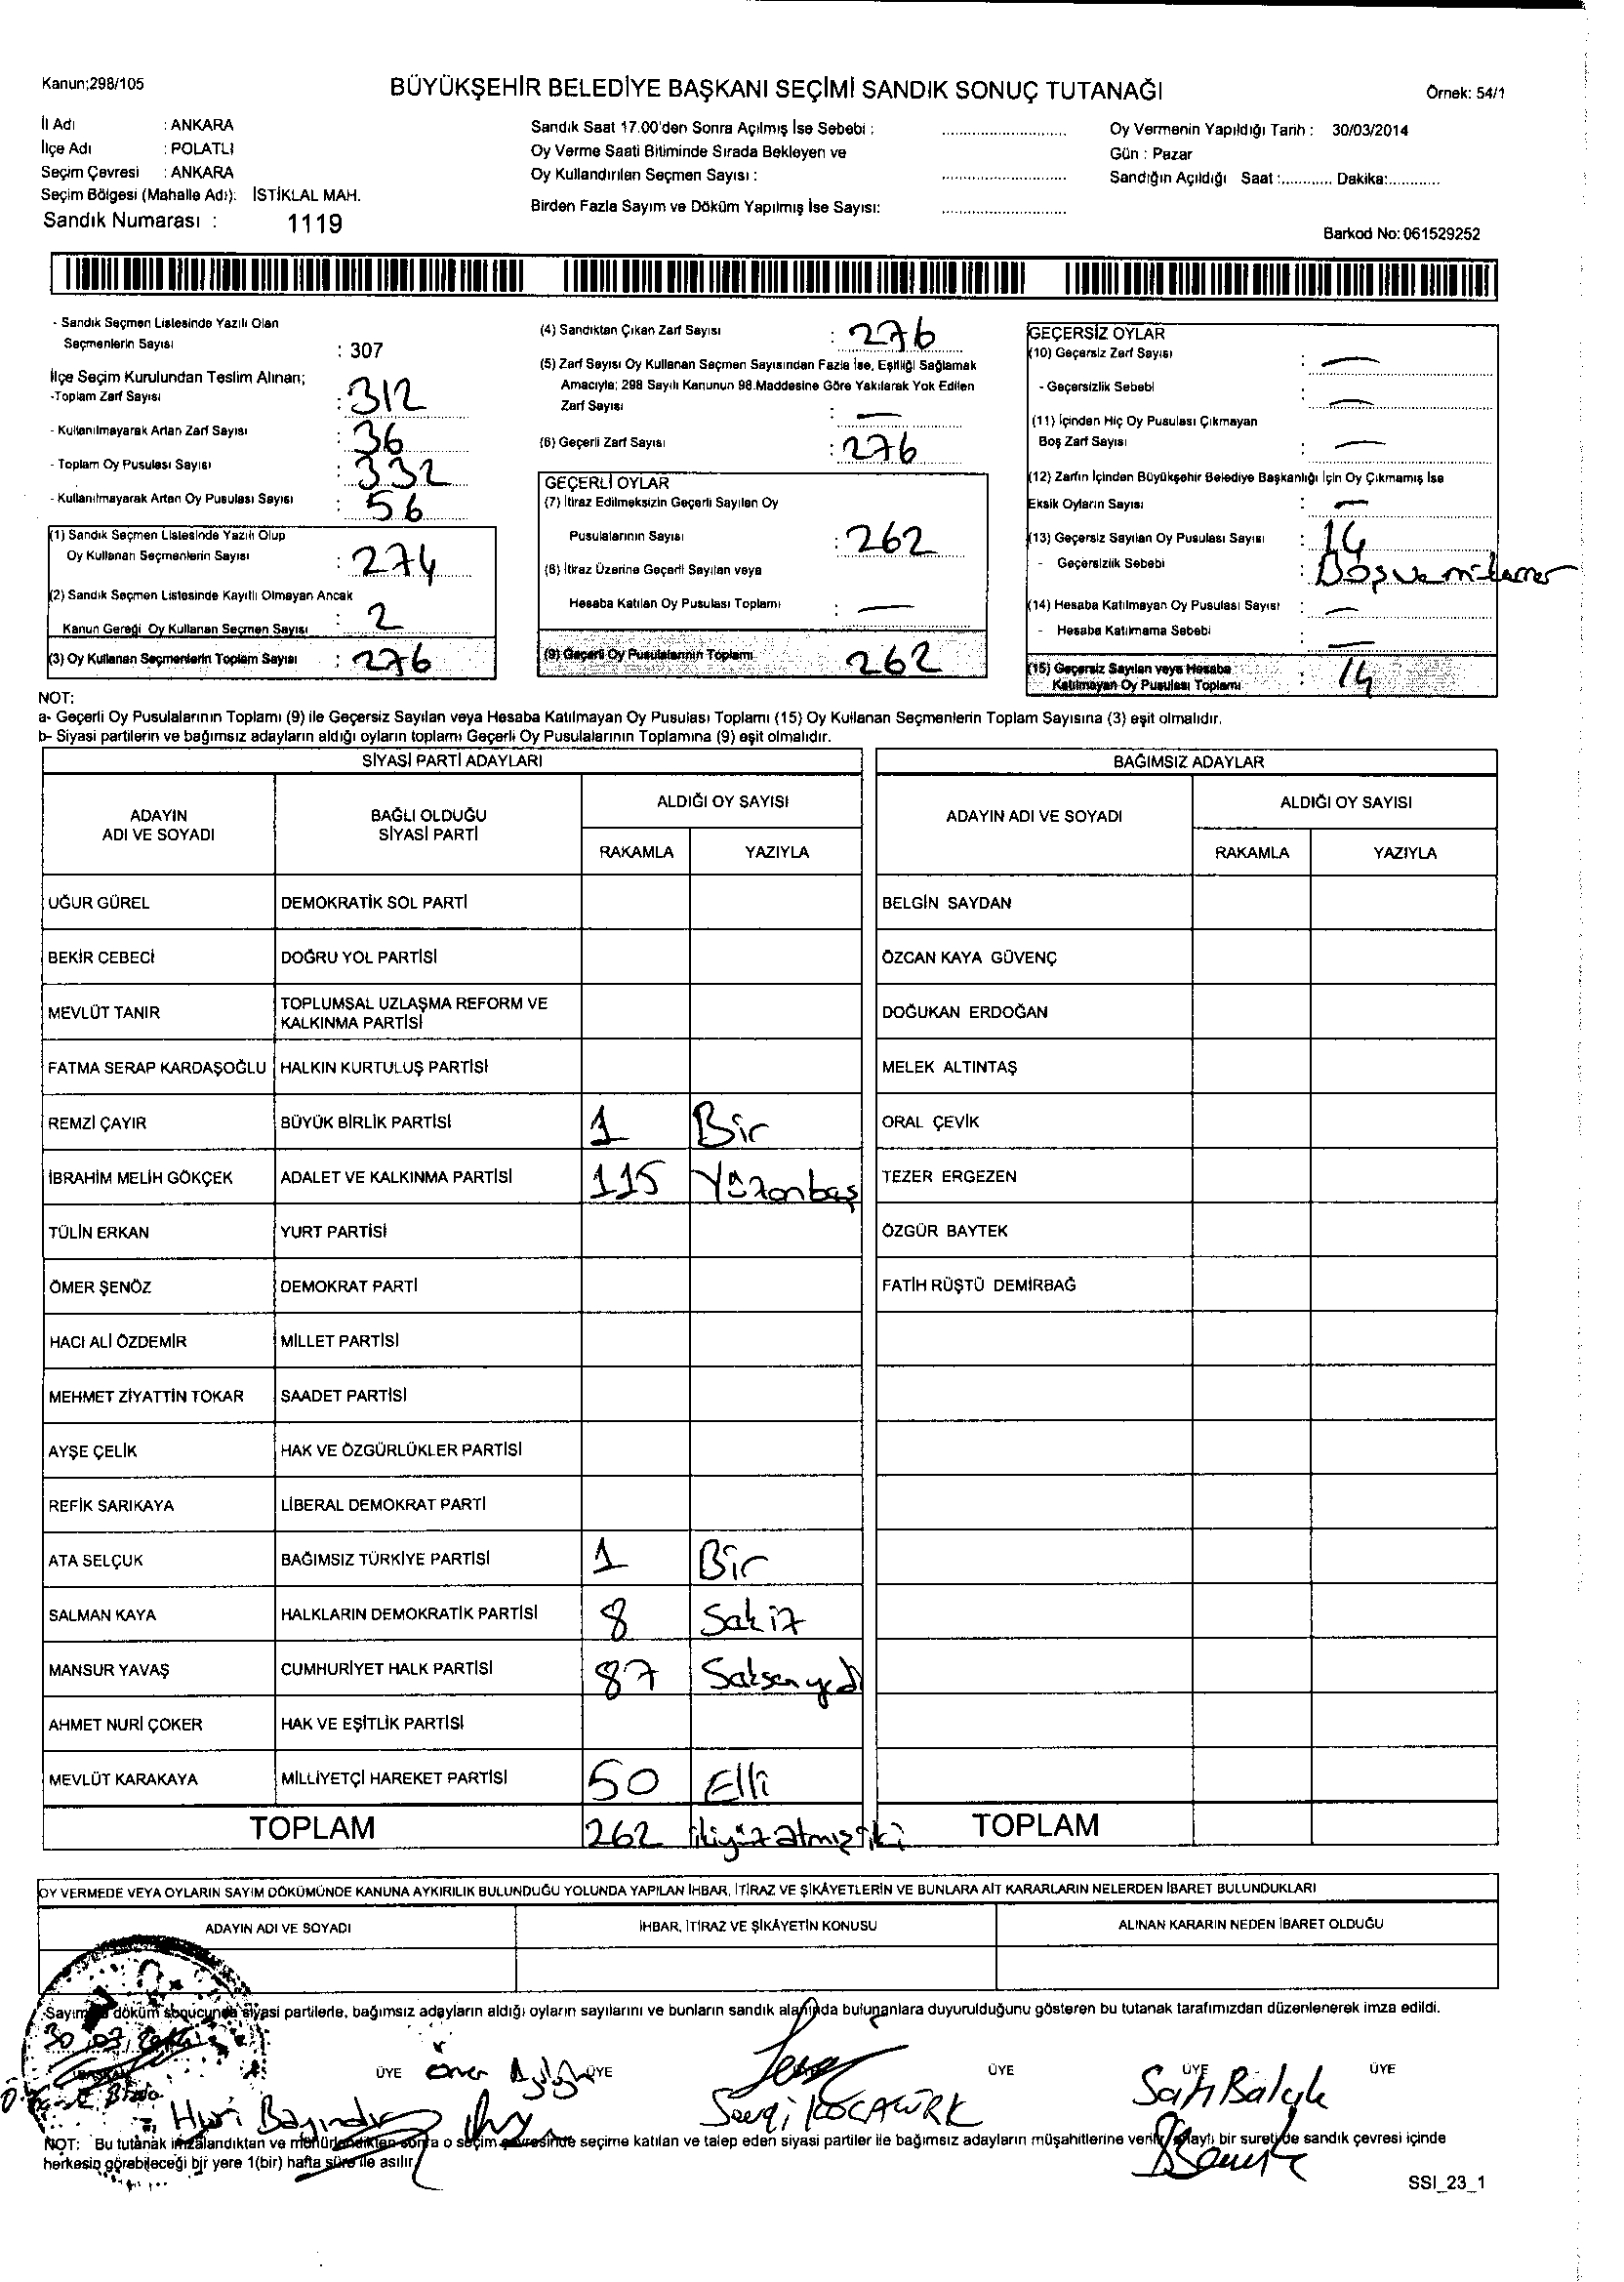 Kanun;298/105
BÜYÜKŞEHİR BELEDİYE BAŞKANI SEÇİMİ SANDIK SONUÇ TUTANAĞI
Örnek: 54/1
İl Adı : ANKARA
İlçe Adı : POLATLI
Seçim Çevresi : ANKARA
Seçim Bölgesi (Mahalle Adı): İSTİKLAL MAH.
Sandık Numarası : 1119
Sandık Saat 17.00'den Sonra Açılmış İse Sebebi :
Oy Verme Saati Bitiminde Sırada Bekleyen ve
Oy Kullandırılan Seçmen Sayısı :
Birden Fazla Sayım ve Döküm Yapılmış İse Sayısı:
Oy Vermenin Yapıldığı Tarih : 30/03/2014
Gün : Pazar
Sandığın Açıldığı Saat :............ Dakika:............
Barkod No: 061529252
- Sandık Seçmen Listesinde Yazılı Olan
Seçmenlerin Sayısı : 307
İlçe Seçim Kurulundan Teslim Alınan;
-Toplam Zarf Sayısı : 312
- Kullanılmayarak Artan Zarf Sayısı : 36
- Toplam Oy Pusulası Sayısı : 332
- Kullanılmayarak Artan Oy Pusulası Sayısı : 56
(1) Sandık Seçmen Listesinde Yazılı Olup
Oy Kullanan Seçmenlerin Sayısı : 274
(2) Sandık Seçmen Listesinde Kayıtlı Olmayan Ancak
Kanun Gereği Oy Kullanan Seçmen Sayısı : 2
(3) Oy Kullanan Seçmenlerin Toplam Sayısı : 276
(4) Sandıktan Çıkan Zarf Sayısı : 276
(5) Zarf Sayısı Oy Kullanan Seçmen Sayısından Fazla İse, Eşitliği Sağlamak
Amacıyla; 298 Sayılı Kanunun 98.Maddesine Göre Yakılarak Yok Edilen
Zarf Sayısı : —
(6) Geçerli Zarf Sayısı : 276
GEÇERLİ OYLAR
(7) İtiraz Edilmeksizin Geçerli Sayılan Oy
Pusulalarının Sayısı : 262
(8) İtiraz Üzerine Geçerli Sayılan veya
Hesaba Katılan Oy Pusulası Toplamı : —
(9) Geçerli Oy Pusulalarının Toplamı 262
GEÇERSİZ OYLAR
(10) Geçersiz Zarf Sayısı : —
- Geçersizlik Sebebi : —
(11) İçinden Hiç Oy Pusulası Çıkmayan
Boş Zarf Sayısı : —
(12) Zarfın İçinden Büyükşehir Belediye Başkanlığı İçin Oy Çıkmamış İse
Eksik Oyların Sayısı : —
(13) Geçersiz Sayılan Oy Pusulası Sayısı : 14
- Geçersizlik Sebebi : Boş ve
(14) Hesaba Katılmayan Oy Pusulası Sayısı : —
- Hesaba Katılmama Sebebi : —
(15) Geçersiz Sayılan veya Hesaba
Katılmayan Oy Pusulası Toplamı : 14
NOT:
a- Geçerli Oy Pusulalarının Toplamı (9) ile Geçersiz Sayılan veya Hesaba Katılmayan Oy Pusulası Toplamı (15) Oy Kullanan Seçmenlerin Toplam Sayısına (3) eşit olmalıdır.
b- Siyasi partilerin ve bağımsız adayların aldığı oyların toplamı Geçerli Oy Pusulalarının Toplamına (9) eşit olmalıdır.
SİYASİ PARTİ ADAYLARI
ADAYIN ADI VE SOYADI
BAĞLI OLDUĞU SİYASİ PARTİ
ALDIĞI OY SAYISI
RAKAMLA YAZIYLA
UĞUR GÜREL DEMOKRATİK SOL PARTİ
BEKİR CEBECİ DOĞRU YOL PARTİSİ
MEVLÜT TANIR TOPLUMSAL UZLAŞMA REFORM VE KALKINMA PARTİSİ
FATMA SERAP KARDAŞOĞLU HALKIN KURTULUŞ PARTİSİ
REMZİ ÇAYIR BÜYÜK BİRLİK PARTİSİ 1 Bir
İBRAHİM MELİH GÖKÇEK ADALET VE KALKINMA PARTİSİ 115 Yüzonbeş
TÜLİN ERKAN YURT PARTİSİ
ÖMER ŞENÖZ DEMOKRAT PARTİ
HACI ALİ ÖZDEMİR MİLLET PARTİSİ
MEHMET ZİYATTİN TOKAR SAADET PARTİSİ
AYŞE ÇELİK HAK VE ÖZGÜRLÜKLER PARTİSİ
REFİK SARIKAYA LİBERAL DEMOKRAT PARTİ
ATA SELÇUK BAĞIMSIZ TÜRKİYE PARTİSİ 1 Bir
SALMAN KAYA HALKLARIN DEMOKRATİK PARTİSİ 8 Sekiz
MANSUR YAVAŞ CUMHURİYET HALK PARTİSİ 87 Seksenyedi
AHMET NURİ ÇOKER HAK VE EŞİTLİK PARTİSİ
MEVLÜT KARAKAYA MİLLİYETÇİ HAREKET PARTİSİ 50 Elli
TOPLAM 262 ikiyüzatmışiki
BAĞIMSIZ ADAYLAR
ADAYIN ADI VE SOYADI
ALDIĞI OY SAYISI
RAKAMLA YAZIYLA
BELGİN SAYDAN
ÖZCAN KAYA GÜVENÇ
DOĞUKAN ERDOĞAN
MELEK ALTINTAŞ
ORAL ÇEVİK
TEZER ERGEZEN
ÖZGÜR BAYTEK
FATİH RÜŞTÜ DEMİRBAĞ
TOPLAM
OY VERMEDE VEYA OYLARIN SAYIM DÖKÜMÜNDE KANUNA AYKIRILIK BULUNDUĞU YOLUNDA YAPILAN İHBAR, İTİRAZ VE ŞİKÂYETLERİN VE BUNLARA AİT KARARLARIN NELERDEN İBARET BULUNDUKLARI
ADAYIN ADI VE SOYADI İHBAR, İTİRAZ VE ŞİKÂYETİN KONUSU ALINAN KARARIN NEDEN İBARET OLDUĞU
Sayım döküm sonucunda siyasi partilerle, bağımsız adayların aldığı oyların sayılarını ve bunların sandık alanında bulunanlara duyurulduğunu gösteren bu tutanak tarafımızdan düzenlenerek imza edildi.
ÜYE ÜYE ÜYE ÜYE ÜYE
Sevgi KOCATÜRK
Satı Balçık
NOT: Bu tutanak imzalandıktan ve mühürlendikten sonra o seçim çevresinde seçime katılan ve talep eden siyasi partiler ile bağımsız adayların müşahitlerine verilir, onaylı bir sureti de sandık çevresi içinde
herkesin görebileceği bir yere 1(bir) hafta süre ile asılır.
SSI_23_1